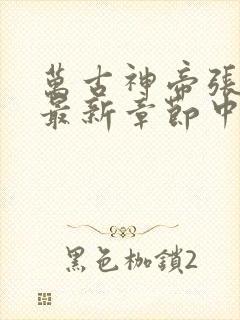 萬古神帝張
最新章節中
黑色枷鎖2